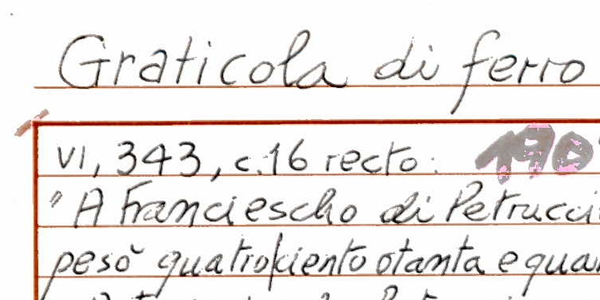 Graticola di ferro
VI, 343, c.16 recto: 190
"A Franciescho di Petrucci
pesò quatrociento otanta e qua